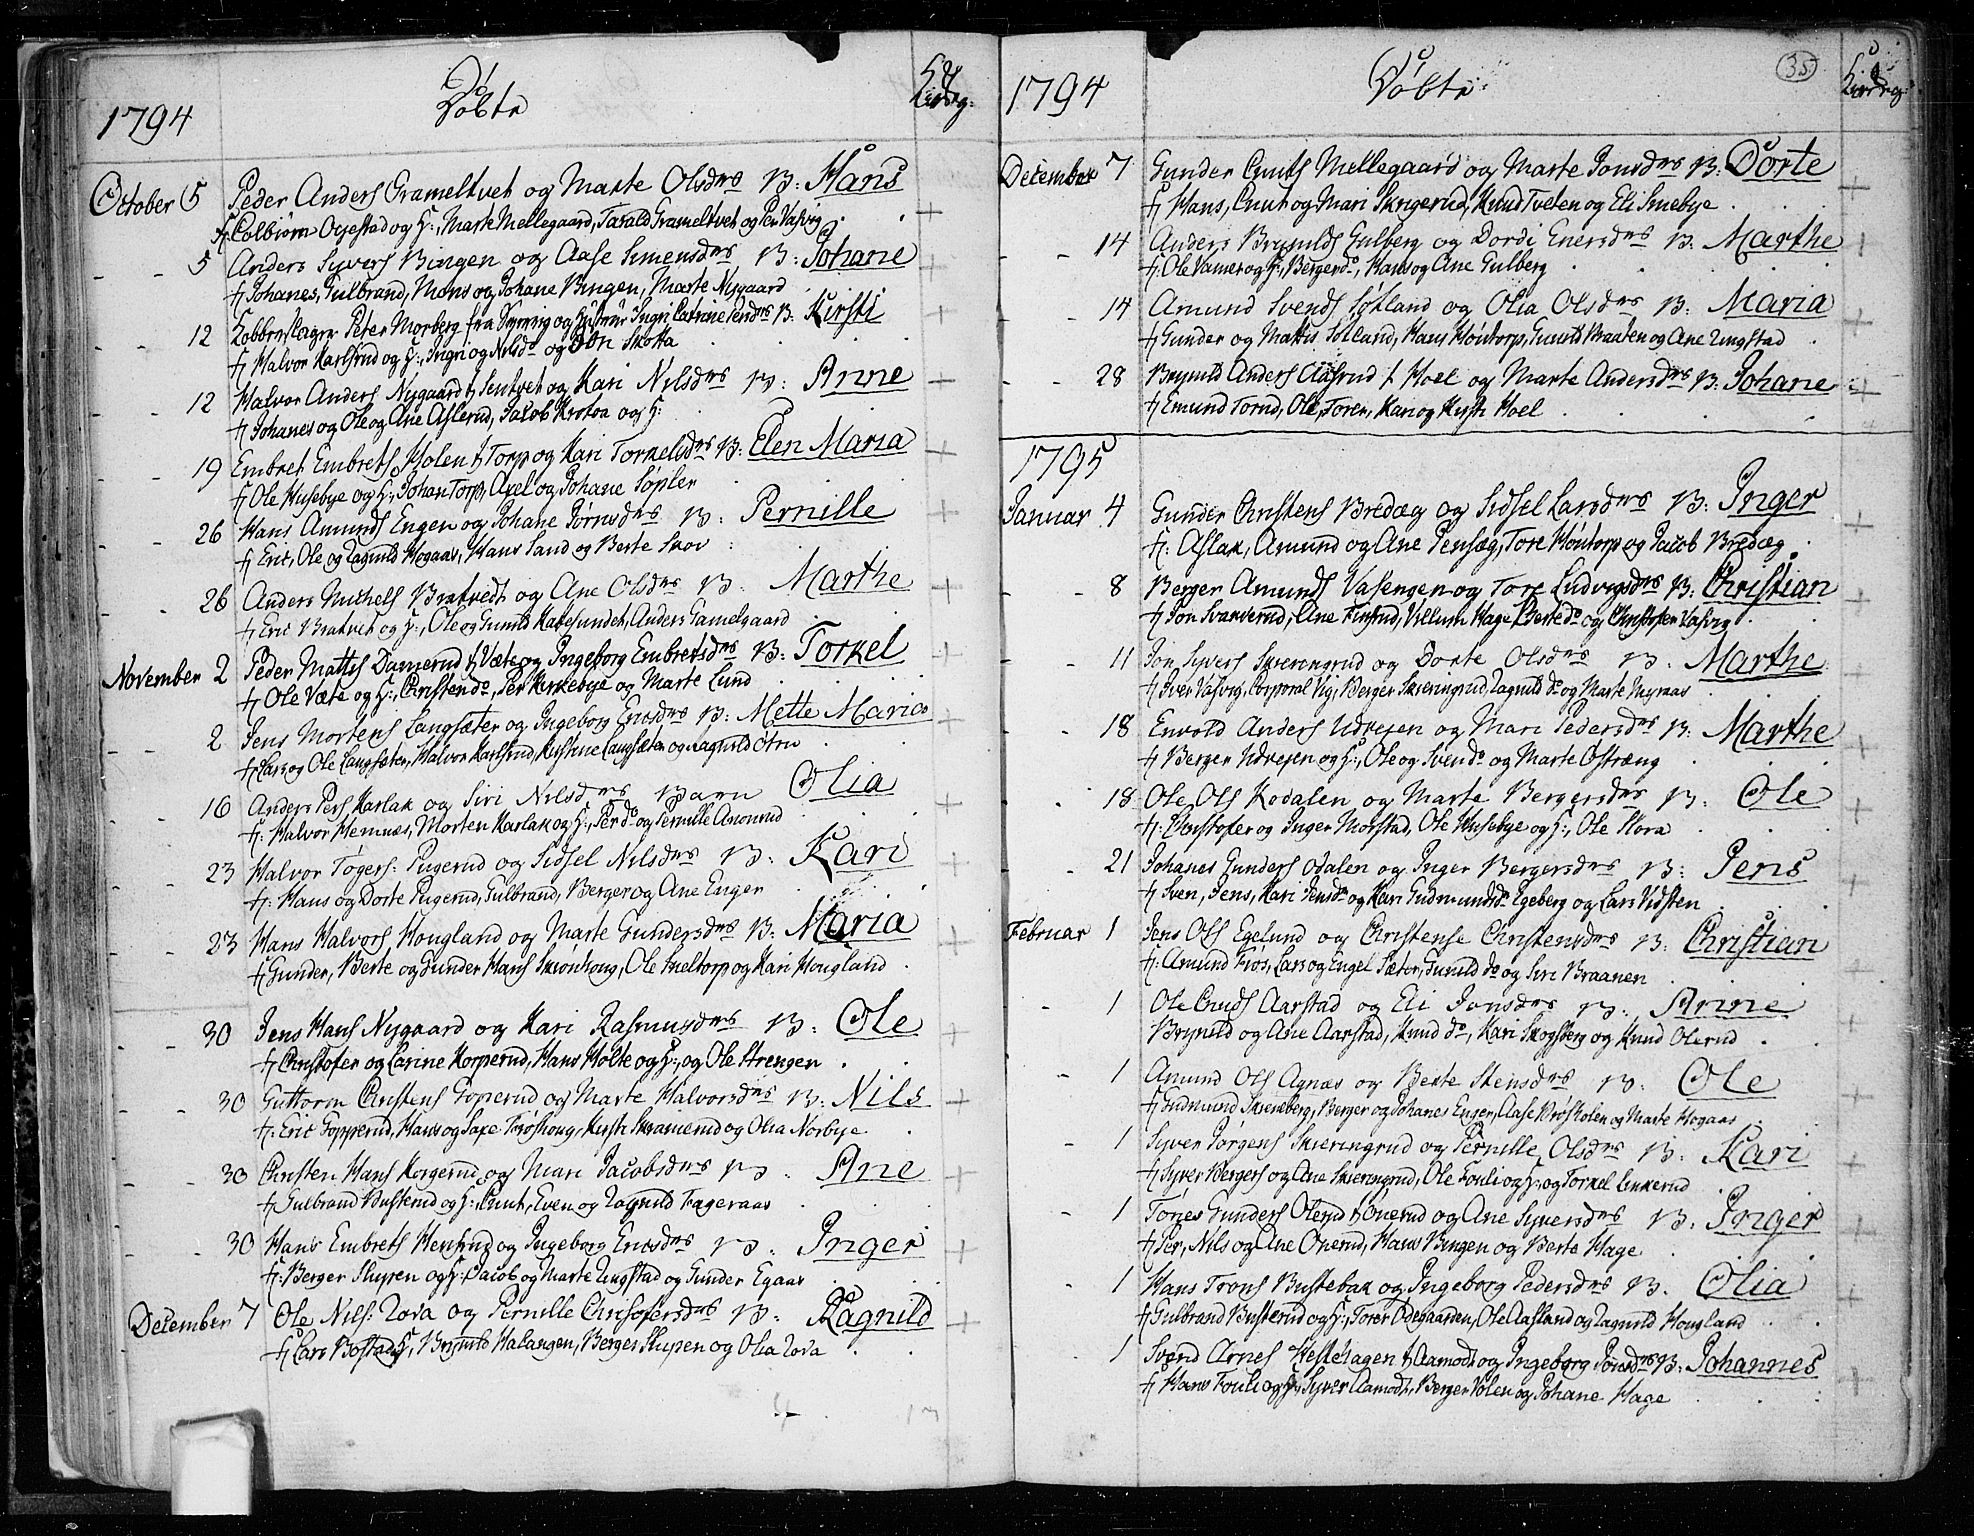 1794 Döbte Kirkeg:
October 5 Peder Anders Grameltvet og Marte Olsdrs B: Hans
f Colbiörn Ojestad og H:, Marte Mellegaard, Tarald Grameltvet og Per Vasvig
- - 5 Anders Syvers Bingen og Aase Simensdrs B: Johane
f Johanes, Gulbrand, Mons og Johane Bingen, Marte Nygaard
12 Peter Morberg fra og Hustrue Ingri Catrine B: Kirsti
f Halvor Karlsrud og H:, Ingri og Nilsdr og Skotta
- - 12 Halvor Anders Nygaard og Kari Nilsdrs B: Anne
f Johanes og Ole og Ane Aslerud, Jacob Krotoa og H:
- - 19 Embret Embrets Holen f Torp og Kari Torkelsdrs B: Elen Maria
f Ole Husebye og H:, Johan Torp, Axel og Johane Söpler
- - 26 Hans Amunds Engen og Johane Jörnsdrs B: Pernille
f Eric, Ole og Ragnild Hogaas, Hans Sand og Berte Skov
- - 26 Anders Michels Bratvedt og Ane Olsdrs B: Marthe
f Eric Bratvet og H:, Ole og Gunild Katesundet, Anders Gamelgaard
November 2 Peder Mattis Damerud f Væte og Ingeborg Embretsdrs B: Torkel
f Ole Væte og H:, Christen do, Per Kirkebye og Marte Lund
- - 2 Jens Mortens Langsæter og Ingeborg Ericsdrs B: Mette Maria
f Lars og Ole Langsæter, Halvor Karlsrud, Kirstine Langsæter og Ragnild Otru
- - 16 Anders Pers Karlak og Siri Nilsdrs Barn Olia
f: Halvor Hemnæs, Morten Karlak og H:, Per do og Pernille Anonrud
- - 23 Halvor Tögers: Pugerud og Sidsel Nilsdrs B: Kari
f: Hans og Dorte Pugerud, Gulbrand, Berger og Ane Enger
- - 23 Hans Halvors Hougland og Marte Gundersdrs B: Maria
f Gunder, Berte og Gunder Hans Skionhoug, Ole Sneltorp og Kari Hougland
- - 30 Jens Hans Nygaard og Kari Rasmusdrs B: Ole
f Christofer og Carine Korperud, Hans Holte og H:, og Ole Strengen
- - 30 Guttorm Christens Goperud og Marte Halvorsdrs B: Nils
f: Eric Gopperud, Hans og Saxe Tröshoug, Kirsti Skramerud og Olia Norbye
- - 30 Christen Hans Korgerud og Mari Jacobsdrs B: Ane
f Gulbrand Busterud og H:, Cnut, Even og Ragnild Fageraas
- - 30 Hans Embrets Henkrud og Ingeborg Ericsdrs B: Inger
f: Berger Skypen og H: Jacob og Marte Ringstad og Gunder Egaas
December 7 Ole Nils: Rova og Pernille Christofersdrs B: Ragnild
f Lars Bostad H:, Brynild Halangen, Berger Skypen og Olia Rova
1794 Döbte 35 Kirkeg:
December 7 Gunder Cnuts Mellegaard og Marte Jonsdrs B: Dorte
f Hans, Cnut og Mari Skrigerud, Knud Tveten og Eli Smebye
- - 14 Anders Brynilds Gulberg og Dordi Enersdrs B: Marthe
f: Ole Vamer og H:, Berger do, Hans og Ane Gulberg
- - 14 Amund Svends Sötland og Olia Olsdrs B: Maria
f Gunder og Mattis Solland, Hans Höntorp, Gunild Braaten og Ane Ringstad
- - 28 Brynild Anders Aasrud f Hoel og Marte Andersdrs B: Johane
f Emund Torud, Ole, Toren, Kari og Kirsti Hoel
1795
Januar 4 Gunder Christens Bredæg og Sidsel Larsdrs B: Inger
f: Aslak, Amund og Ane Pensæg, Tore Höntorp og Jacob Bredæg
- 8 Berger Amunds Vasengen og Tore Ludvigsdrs B: Christian
f Jon Svarverud, Ane Finsrud, Villum Hage Berte do og Christofer Vasvig
- - 11 Jon Syvers Skieringrud og Dorte Olsdrs B. Marthe
f Iver Vasvig, Corporal Vig, Berger Skieringrud, Ragnild do og Marte Myraas
- - 18 Envold Anders Udvejen og Mari Pedersdrs B: Marthe
f Berger Udvejen og H:, Ole og Sven do og Marte Ostræng
- 18 Ole Ols Kodalen og Marte Bergersdrs B: Ole
f: Christofer og Inger Morstad, Ole Husebye og H:, Ole Flora
- 21 Johanes Gunders Odalen og Inger Bergersdrs B: Jens
f Sven, Jens, Kari Jensdr og Kari Gudmundsdr Egeberg og Lars Vidsten
Februar 1 Jens Ols Egelund og Christense Christensdrs B: Christian
f: Amund Fros, Lars og Engel Sæter, Gunild do og Siri Braanen
- 1 Ole Cnuds Aarstad og Eli Jonsdrs B: Anne
Brynild og Ane Aarstad, Knud do, Kari Skogsberg og Knud Olerud
- 1 Amund Ols Agnæs og Berte Stensdrs B: Ole
f Gudmund Skieneberg, Berger og Johanes Enger, Aase Brosholen og Marte Hogaas
- 1 Syver Jörgens Skieringrud og Pernille Olsdrs B: Kari
f Syver Bergers og Ane Skieringrud, Ole Fouli og H: og Torkel Linkerud
- 1 Tores Gunders Olerud f Onerud og Ane Syversdrs B: Inger
f Per, Nils og Ane Onerud, Hans Bingen og Berte Hage
- 1 Hans Trons Bustebak og Ingeborg Pedersdrs B. Olia
f Gulbrand Busterud og H:, Torer Odegaarden, Ole Aasland og Ragnild Hougland
- 1 Svend Arnes Hestehagen f Aamodt og Ingeborg Jonsdrs B: Johannes
f Hans Fouli og H:, Syver Aamodt, Berger Volen og Johane Hage